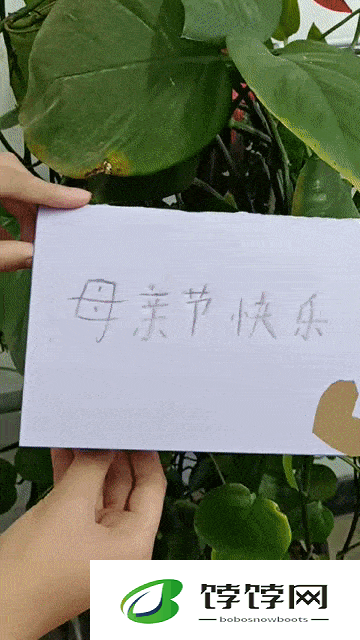 母亲节快乐
饽饽网
bobosnowboots